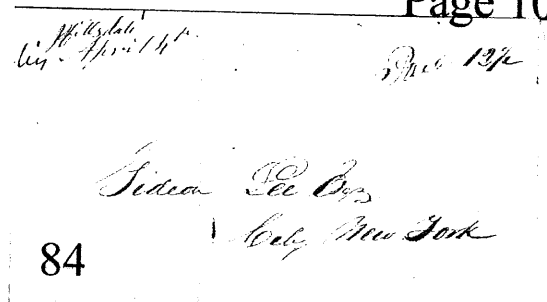 Page 10
Hillsdale
April 4th
Paid 12½
Gideon Lee Esq
City New York
84